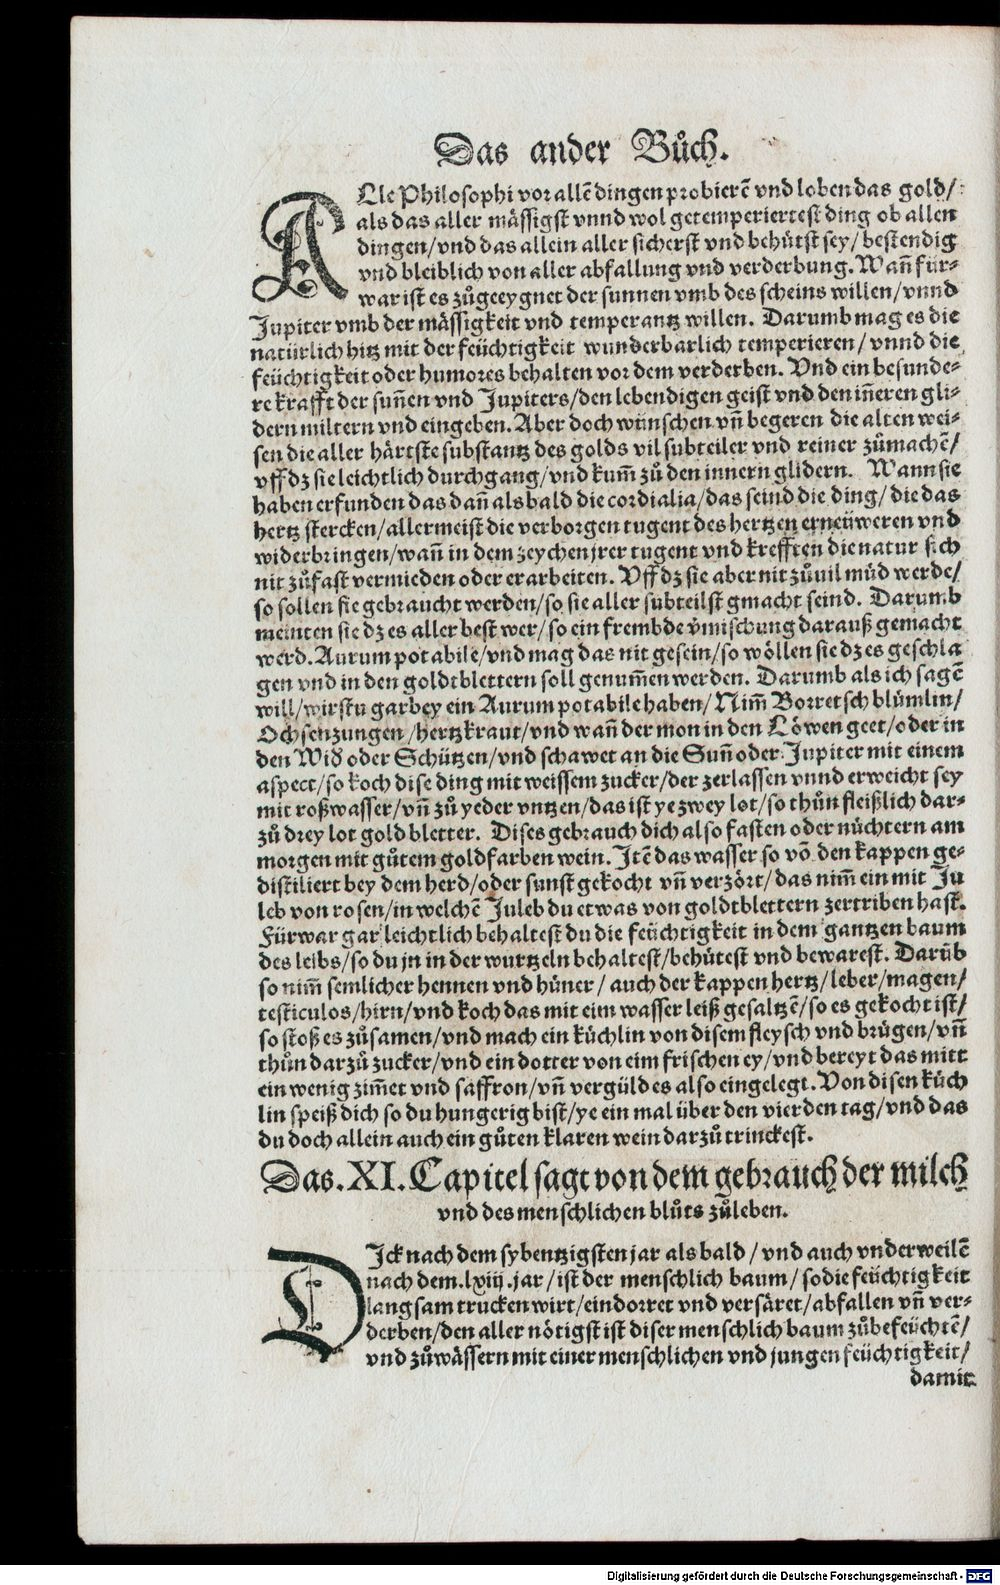 Das ander Bůch.
ALle Philosophi vor allē dingen probierē vnd loben das gold/
als das aller mässigst vnnd wol getemperiertest ding ob allen
dingen/vnd das allein aller sicherst vnd behütst sey/bestendig
vnd bleiblich von aller abfallung vnd verderbung. Wañ für-
war ist es zůgeeygnet der sunnen vmb des scheins willen/vnnd
Jupiter vmb der mässigkeit vnd temperantz willen. Darumb mag es die
natürlich hitz mit der feüchtigkeit wunderbarlich temperieren/vnnd die
feüchtigkeit oder humores behalten vor dem verderben. Vnd ein besunde-
re krafft der suñen vnd Jupiters/den lebendigen geist vnd den iñeren gli-
dern miltern vnd eingeben. Aber doch wünschen vñ begeren die alten wei-
sen die aller härtste substantz des golds vil subteiler vnd reiner zůmachē/
vff dz sie leichtlich durchgang/vnd kum̃ zů den innern glidern. Wann sie
haben erfunden das dañ als bald die cordialia/das seind die ding/die das
hertz stercken/allermeist die verborgen tugent des hertzen erneüweren vnd
widerbringen/wañ in dem zeychen jrer tugent vnd krefften die natur sich
nit zůfast vermieden oder erarbeiten. Vff dz sie aber nit zůuil müd werde/
so sollen sie gebraucht werden/so sie aller subteilst gmacht seind. Darumb
meinten sie dz es aller best wer/so ein frembde v̄mischung darauß gemacht
werd. Aurum potabile/vnd mag das nit gesein/so wöllen sie dz es geschla
gen vnd in den goldtblettern soll genum̃en werden. Darumb als ich sagē
will/wirstu garbey ein Aurum potabile haben/Nim̃ Borretsch blümlin/
Ochsenzungen/hertzkraut/vnd wañ der mon in den Löwen geet/oder in
den Wid̄ oder Schützen/vnd schawet an die Suñ oder Jupiter mit einem
aspect/so koch dise ding mit weissem zucker/der zerlassen vnnd erweicht sey
mit roßwasser/vñ zů yeder vntzen/das ist ye zwey lot/so thůn fleißlich dar-
zů drey lot gold bletter. Dises gebrauch dich also fasten oder nüchtern am
morgen mit gůtem goldfarben wein. Jtē das wasser so vō den kappen ge-
distiliert bey dem herd/oder sunst gekocht vñ verzört/das nim̃ ein mit Ju
leb von rosen/in welchē Juleb du etwas von goldtblettern zertriben hast.
Fürwar gar leichtlich behaltest du die feüchtigkeit in dem gantzen baum
des leibs/so du jn in der wurtzeln behaltest/behütest vnd bewarest. Darūb
so nim̃ semlicher hennen vnd hüner/auch der kappen hertz/leber/magen/
testiculos/hirn/vnd koch das mit eim wasser leiß gesaltzē/so es gekocht ist/
so stoß es zůsamen/vnd mach ein küchlin von disem fleysch vnd brügen/vñ
thůn darzů zucker/vnd ein dotter von eim frischen ey/vnd bereyt das mitt
ein wenig zim̃et vnd saffron/vñ vergüld es also eingelegt. Von disen küch
lin speiß dich so du hungerig bist/ye ein mal über den vierden tag/vnd das
du doch allein auch ein gůten klaren wein darzů trinckest.
Das. XI. Capitel sagt von dem gebrauch der milch
vnd des menschlichen blůts zůleben.
DJck nach dem sybentzigsten jar als bald/vnd auch vnderweilē
nach dem.lxiij.jar/ist der menschlich baum/so die feüchtigkeit
langsam trucken wirt/eindorret vnd versäret/abfallen vñ ver-
derben/den aller nötigst ist diser menschlich baum zůbefeüchtē/
vnd zůwässern mit einer menschlichen vnd jungen feüchtigkeit/
damit
Digitalisierung gefördert durch die Deutsche Forschungsgemeinschaft - DFG